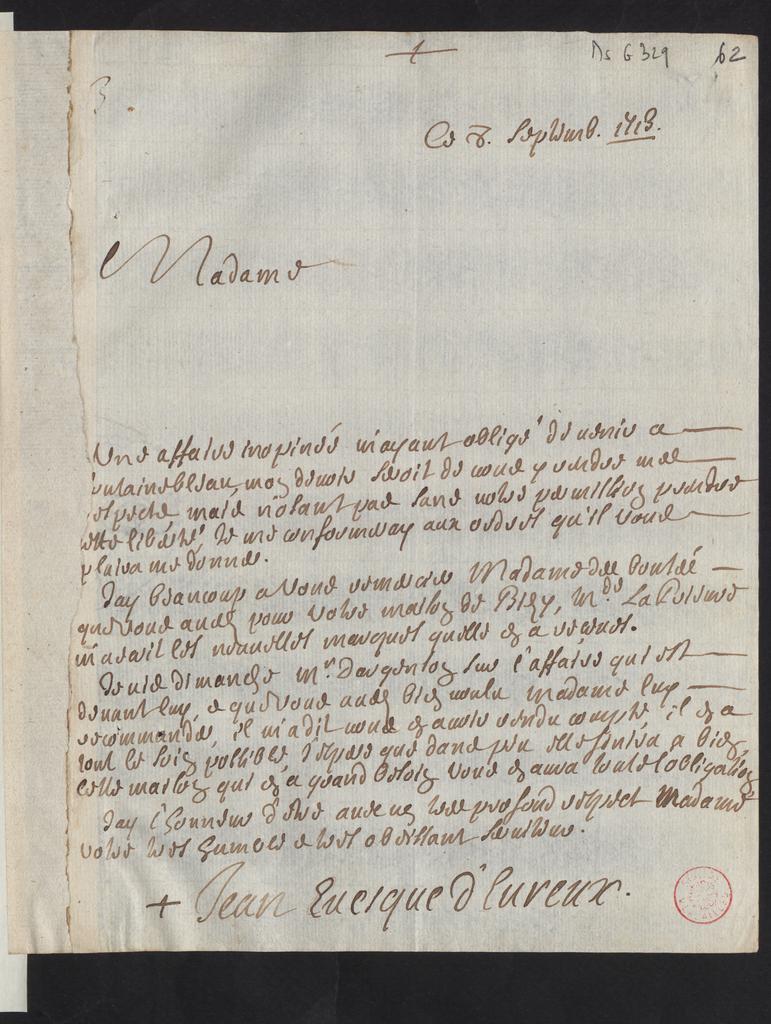 +
Ms G 329 62
3.
Ce 8. septemb. 1713.
Madame
Une affaire inopinée m'ayant obligé de venir a
fontainebleau, mon devoir seroit de vous y rendre mes
respects mais n'osant pas sans votre permission prendre
cette liberté, Je me conformeray aux ordres qu'il vous
plaira me donner.
Jay beaucoup a vous remercier Madame des bontés
que vous avez pour votre maison de Bisy, Mde. La Prieure
m'avoit les nouvelles marques quelle en a receues.
Je vis dimanche mr. Dargenson sur l'affaire qui est
devant luy, e que vous avez bien voulu Madame luy
recommander, il m'a dit vous en avoir rendu compte, il en a
tout le soin possible, J'espere que dans peu elle finira a bien,
cette maison qui en a grand besoin vous en aura toute l'obligation
Jay l'honneur d'estre avec un tres profond respect Madame
votre tres humble e tres obeissant serviteur.
+ Jean Evesque d'Evreux.